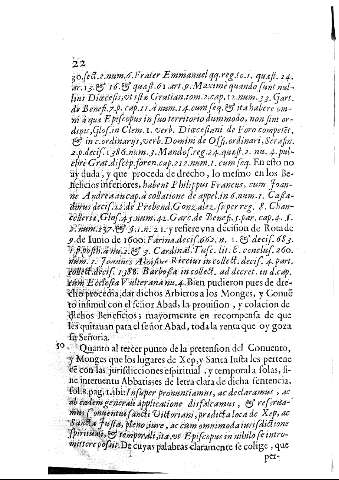 22
30. sect. 2. num. 6. Frater Emmanuel qq. reg. to. 1. quæst. 24.
ar. 13. & 16. & quæst. 61. art. 9. Maxime quando sunt nul-
lius Diœcesis, ut ista Gratian. tom. 2. cap. 12. num. 33. Garc.
de Benef. 7. p. cap. 11. num. 14. cum seq. & ita habere om-
nia que Episcopus in suo territorio dummodo, non sint or-
dinis, Glos. in Clem. 1. verb. Diœcesani de Foro compet.
& in c. ordinarij, verb. Domim de Offi. ordinari, Seraf. n.
2. p. decis. 1386. num. 3. Mandos. reg. 24. quæst. 2. nu. 4. pul-
chri Grat. discep. foren. cap. 212. num. 1. cum seq. En esto no
ay duda, y que proceda de drecho, lo mesmo en los Be-
neficios inferiores, habent Philippus Francus, cum Joan-
ne Andrea in cap. à collatione de appel. in 6. num. 1. Casta-
dorus decis. 22. de Prebend. Gonzalez. super reg. 8. Chan-
cellerie, Glos. 43. num. 42. Garc. de Benefi. 1. par. cap. 4. §.
2. num. 237. & 5. 1. n. 21. y refiere vna decision de Rota de
9. de Iunio de 1600. Farina. decis. 662. n. 1. & decis. 683.
1. p. posth. à nu. 2. & 3. Cardinal. Tusc. lit. E. conclus. 260.
num. 1. Joannes Aloysius Riccius in collect. decis. 4. part.
collect. decis. 1388. Barbosa in collect. ad decret. in d. cap.
cum Ecclesia Vulterana nu. 4. Bien pudieron pues de dre-
cho procedia, dar dichos Arbitros a los Monges, y Conuẽ
to insimul con el señor Abad, la prouision, y colacion de
dichos Beneficios; mayormente en recompensa de que
les quitauan para el señor Abad, toda la renta que oy goza
su Señoria.
50. Quanto al tercer punto de la pretension del Conuento,
y Monges que los lugares de Xep, y Santa Iusta les pertene
cẽ con las jurisdicciones espiritual, y temporal a solas, si-
ne interuentu Abbatis es de letra clara de dicha sentencia,
fol. 8. pag. 1. ibi: Insuper pronunciamus, ac declaramus, ac
ab eadem generali applicatione disfalcamus, & reserua-
mus Conuentui sancti Victoriani, prædicta loca de Xep, ac
Sancta Justa, pleno iure, ac cum omnimoda iurisdictione
spirituali, & temporali, ita ne Episcopus in nihilo se intro-
mittere possit. De cuyas palabras claramente se colige, que
per-